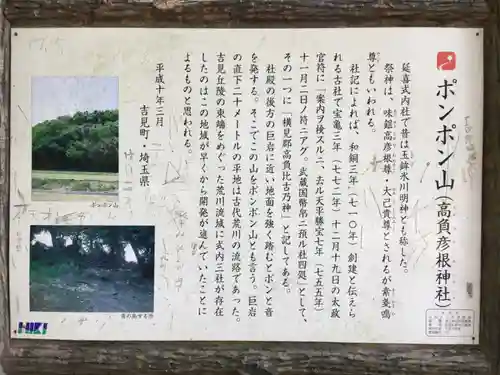 ポンポン山（高負彦根神社）
延喜式内社で昔は玉鉾氷川明神とも称した。
祭神は、味鉏高彦根尊・大己貴尊とされるが素戔嗚
尊ともいわれる。
社記によれば、和銅三年（七一〇年）創建と伝えら
れる古社で宝亀三年（七七二年）十二月十九日の太政
官符に「案内ヲ検スルニ、去ル天平勝宝七年（七五五年）
十一月二日ノ符ニアグ。武蔵国幣帛ニ預ル社四処」として、
その一つに「横見郡高負比古乃神」と記してある。
社殿の後方の巨岩に近い地面を強く踏むとポンと音
を発する。そこでこの山をポンポン山とも言う。巨岩
の直下二十メートルの平地は古代荒川の流路であった。
吉見丘陵の東端をめぐった荒川流域に式内三社が存在
したのはこの地域が早くから開発が進んでいたことに
よるものと思われる。
平成十年三月
吉見町・埼玉県
ポンポン山
音の発する所